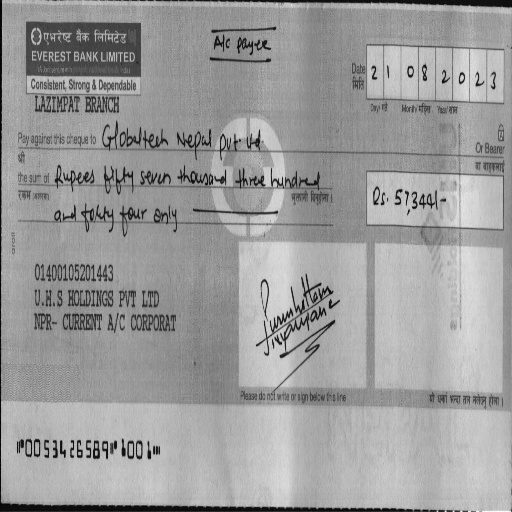 एभरेष्ट बैंक लिमिटेड
EVEREST BANK LIMITED
Consistent, Strong & Dependable
LAZIMPAT BRANCH
A/c payee
Date 21 08 2023
मिति
Day/ गते Month/ महिना Year/ साल
Pay against this cheque to Globaltech Nepal Pvt. Ltd.
Or Bearer
श्री
वा वाहकलाई
the sum of Rupees fifty seven thousand three hundred
रकम (अक्षरमा)
and forty four only
Rs. 57,344/-
01400105201443
U.H.S HOLDINGS PVT LTD
NPR- CURRENT A/C CORPORAT
Please do not write or sign below this line
⑈0053426589⑈ 1001⑈